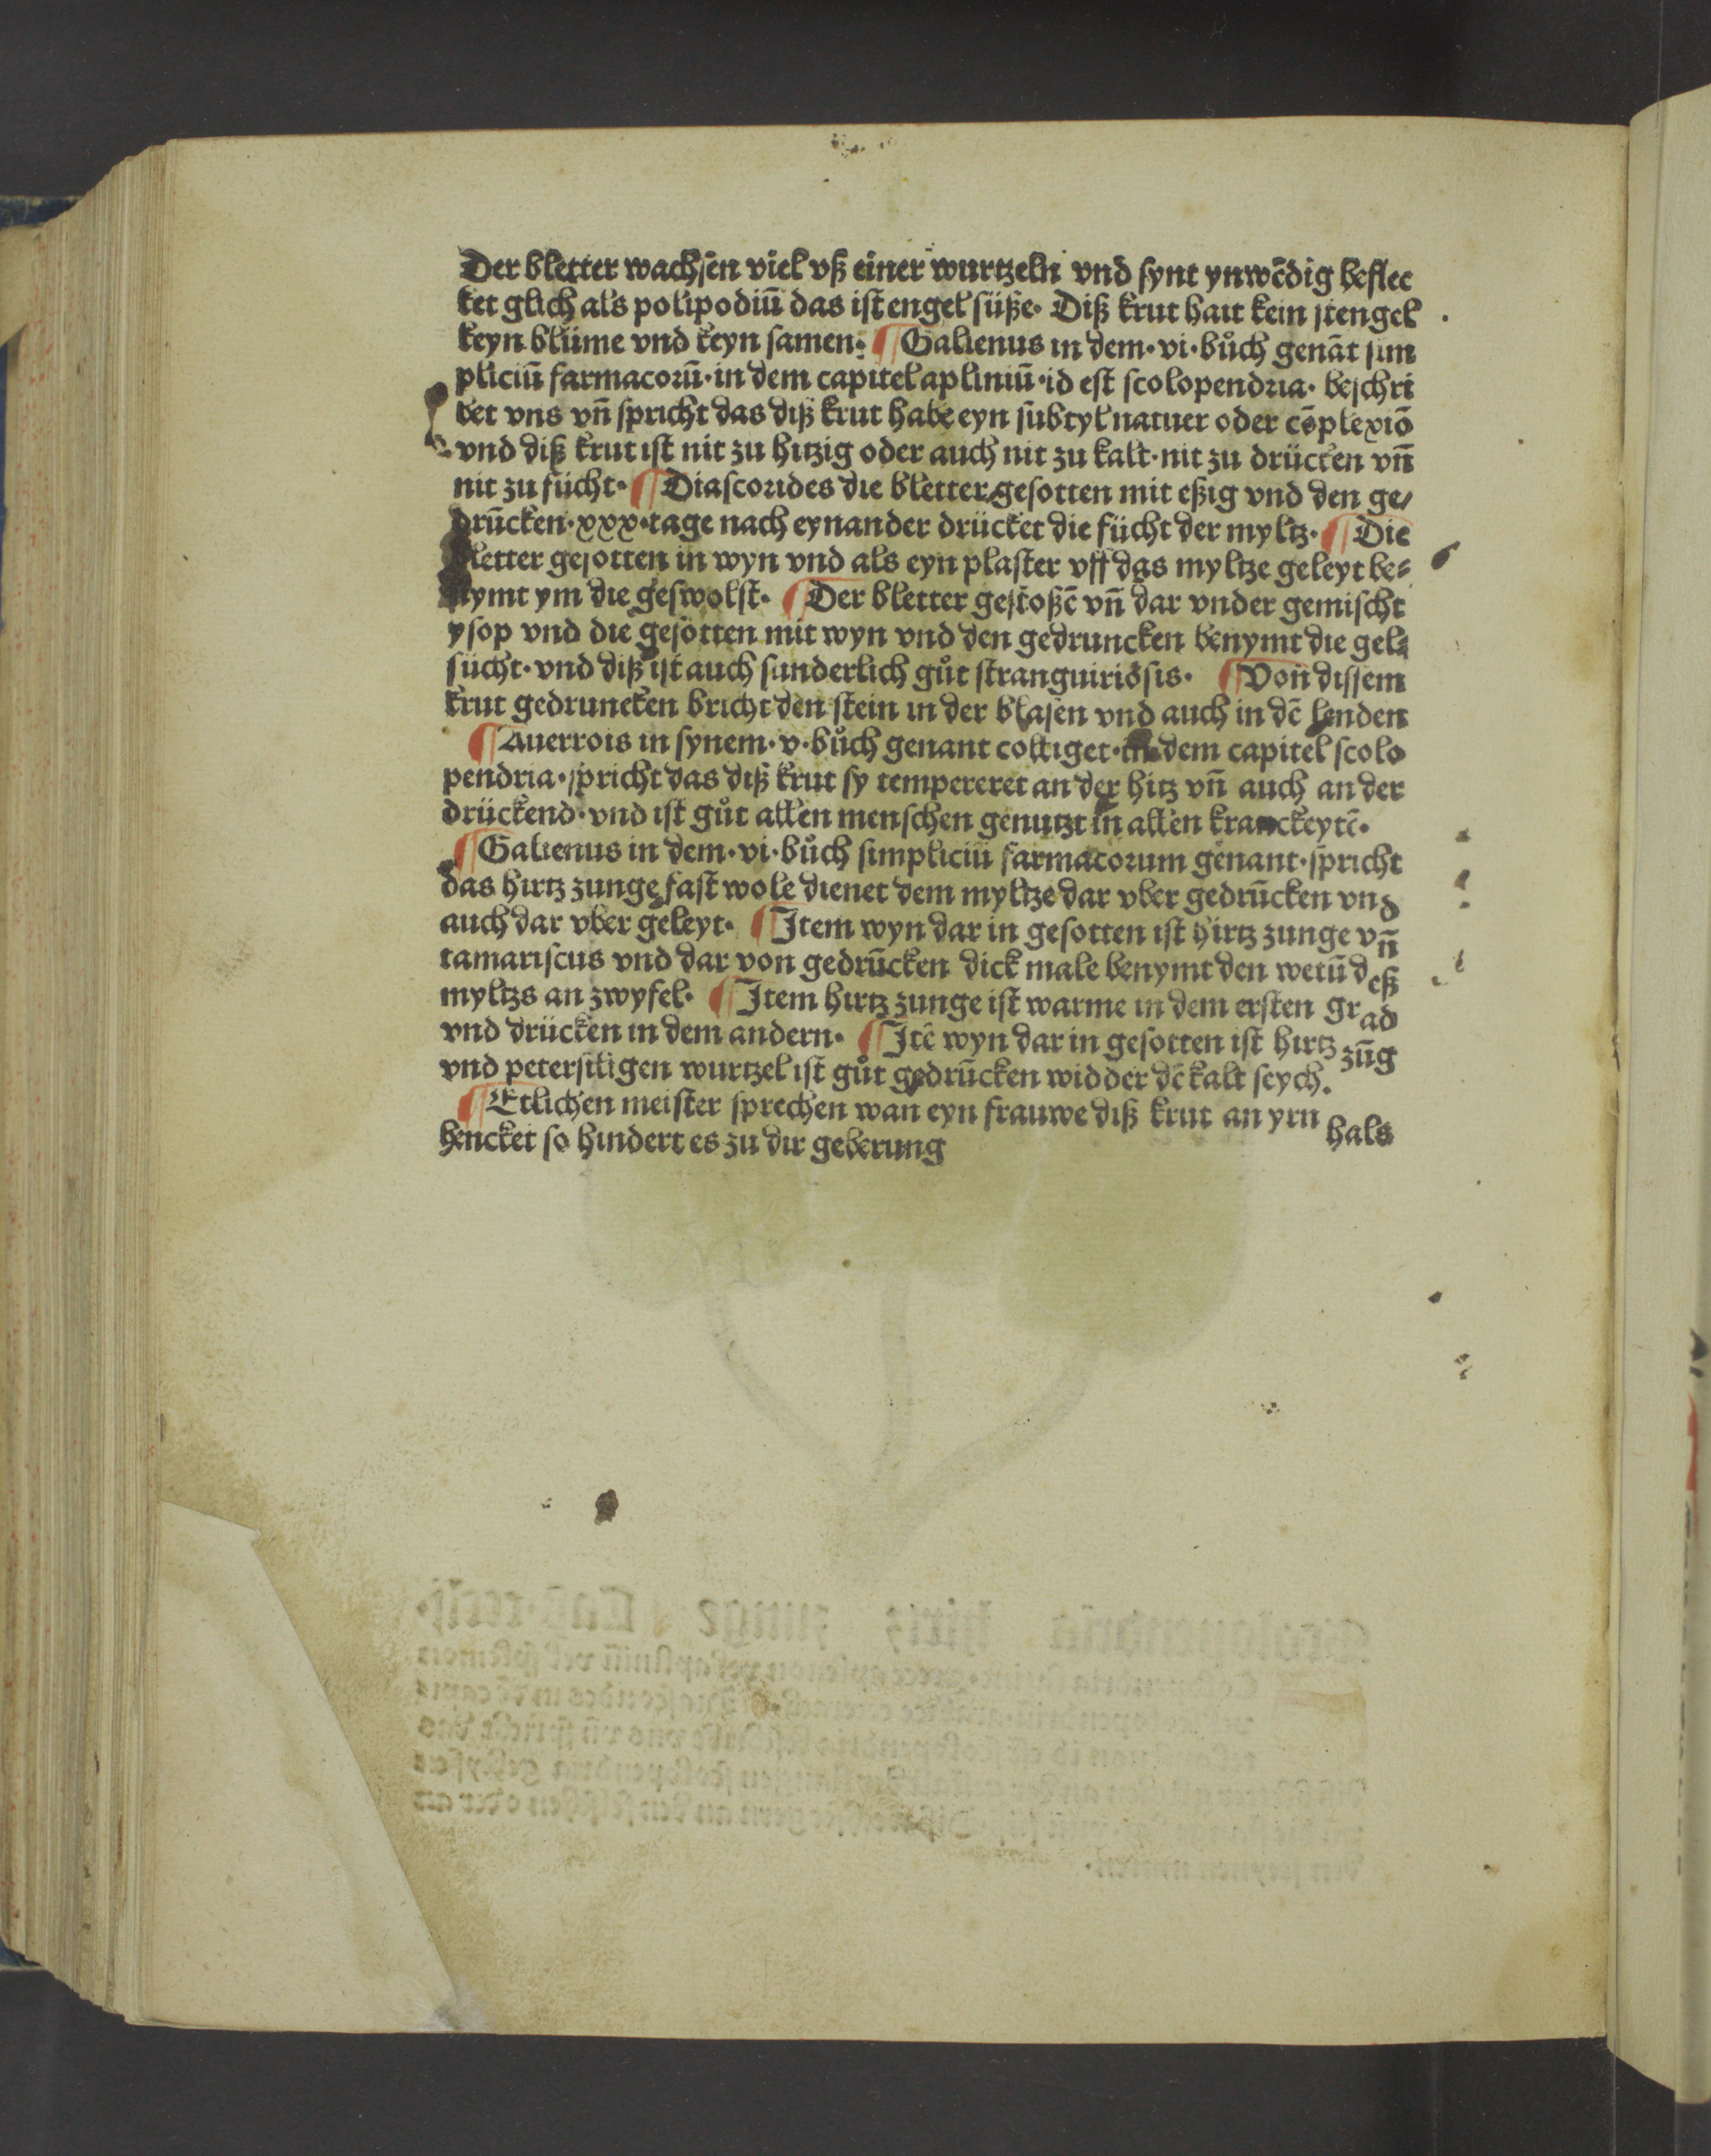 Der bletter wachsen viel vß einer wurtzeln vnd synt ynwēdig beflec
ket glich als polipodiū das ist engel süße· Diß krut hait kein stengel
keyn blüme vnd keyn samen· ¶ Galienus in dem·vi·bůch genāt sim
pliciū farmacorū·in dem capitel apliniū·id est scolopendria· beschri
bet vns vn̄ spricht das diß krut habe eyn subtyl natuer oder cōplexiō
vnd diß krut ist nit zu hitzig oder auch nit zu kalt·nit zu drücken vn̄
nit zu fücht· ¶ Diascorides die bletter gesotten mit eßig vnd den ge/
drūcken·xxx·tage nach eynander drücket die fücht der myltz· ¶ Die
bletter gesotten in wyn vnd als eyn plaster vff das myltze geleyt be⸗
nymt ym die geswolst· ¶ Der bletter gestoßē vn̄ dar vnder gemischt
ysop vnd die gesotten mit wyn vnd den gedruncken benymt die gel⸗
sücht·vnd diß ist auch sunderlich gůt stranguiriosis· ¶ Von dissem
krut gedruncken bricht den stein in der blasen vnd auch in dē lenden
¶ Auerrois in synem·v·bůch genant colliget·in dem capitel scolo
pendria·spricht das diß krut sy tempereret an der hitz vn̄ auch an der
drückend·vnd ist gůt allen menschen genutzt in allen kranckeytē·
¶ Galienus in dem·vi·bůch simpliciū farmacorum genant·spricht
das hirtz zunge fast wole dienet dem myltze dar vber gedrūcken vnd
auch dar vber geleyt· ¶ Item wyn dar in gesotten ist hirtz zunge vn̄
tamariscus vnd dar von gedrūcken dick male benymt den wetū deß
myltzs an zwyfel· ¶ Item hirtz zunge ist warme in dem ersten grad
vnd drücken in dem andern· ¶ Itē wyn dar in gesotten ist hirtz zūg
vnd petersiligen wurtzel ist gůt gedrūcken widder dē kalt seych·
¶ Etlichen meister sprechen wan eyn frauwe diß krut an yrn hals
hencket so hindert es zu dir geberung